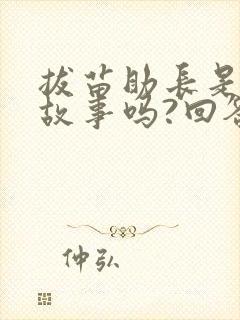 拔苗助長是
故事吗?回答
仲弘